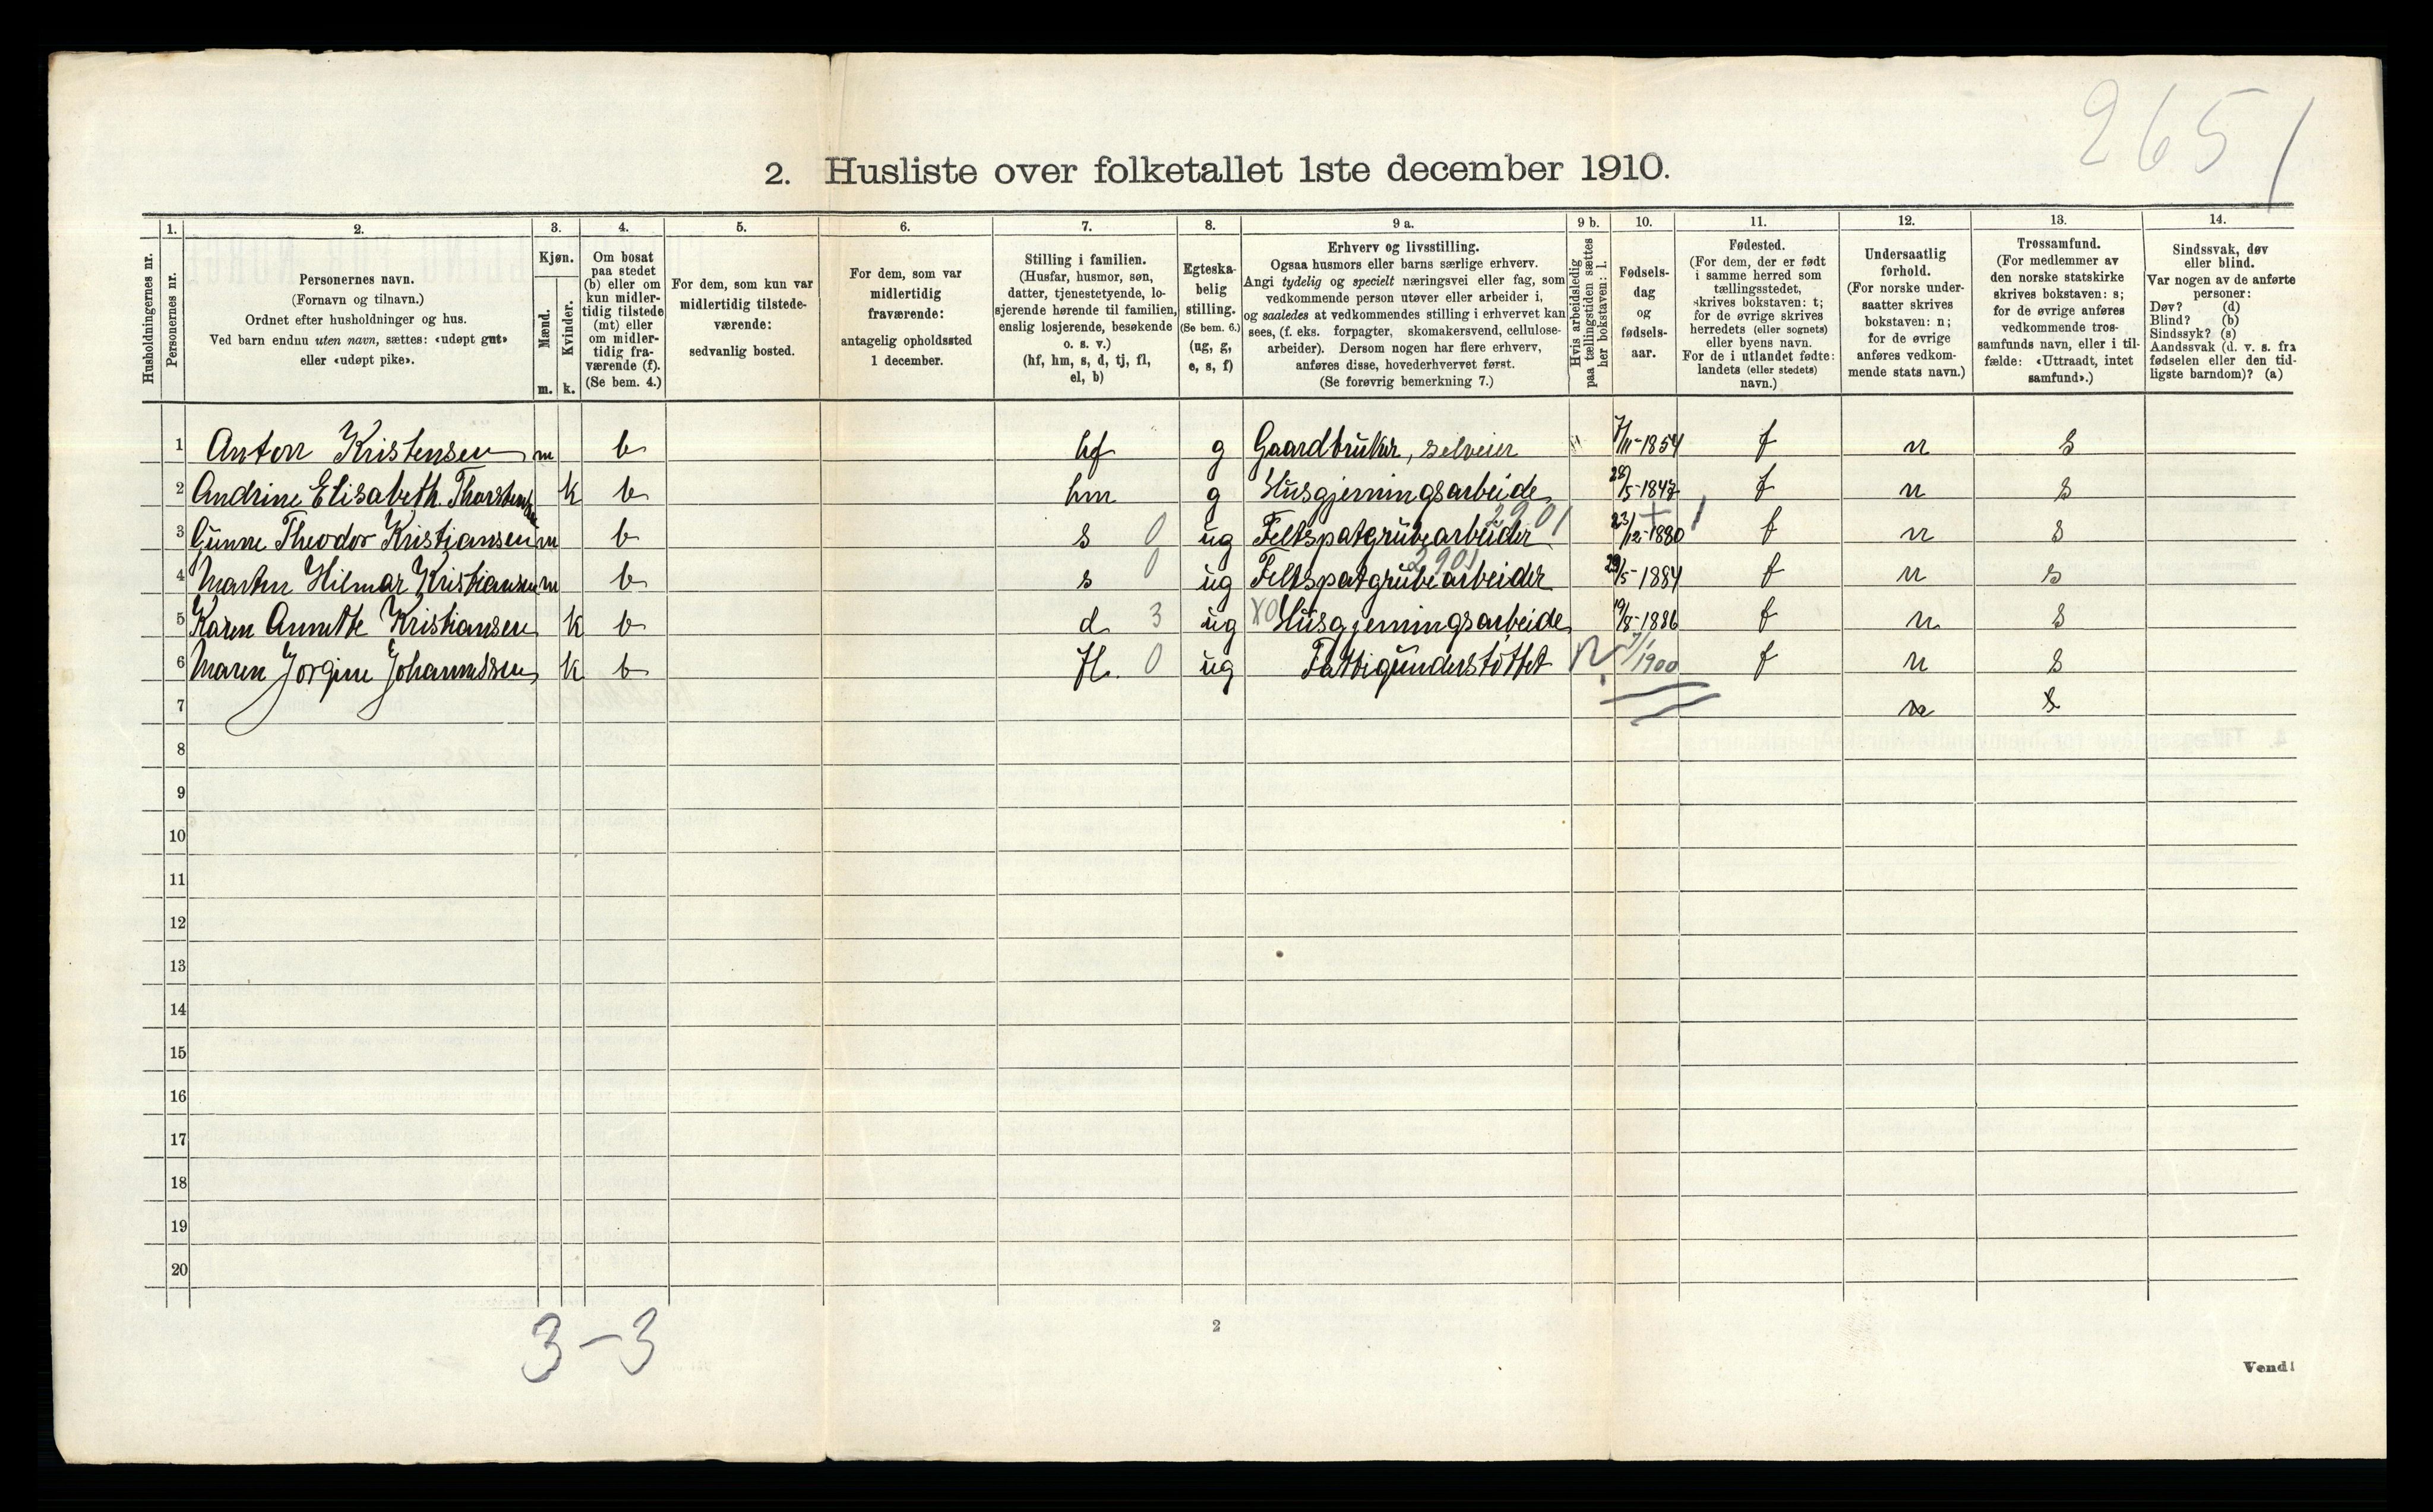 2651
2. Husliste over folketallet 1ste december 1910.
1. 2. 3. 4. 5. 6. 7. 8. 9 a. 9 b. 10. 11. 12. 13. 14.
Husholdningernes nr.
Personernes nr.
Personernes navn.
(Fornavn og tilnavn.)
Ordnet efter husholdninger og hus.
Ved barn endnu uten navn, sættes: «udøpt gut»
eller «udøpt pike».
Kjøn.
Mænd.
m.
Kvinder.
k.
Om bosat
paa stedet
(b) eller om
kun midler-
tidig tilstede
(mt) eller
om midler-
tidig fra-
værende (f).
(Se bem. 4.)
For dem, som kun var
midlertidig tilstede-
værende:
sedvanlig bosted.
For dem, som var
midlertidig
fraværende:
antagelig opholdssted
1 december.
Stilling i familien.
(Husfar, husmor, søn,
datter, tjenestetyende, lo-
sjerende hørende til familien,
enslig losjerende, besøkende
o. s. v.)
(hf, hm, s, d, tj, fl,
el, b)
Egteska-
belig
stilling.
(Se bem. 6.)
(ug, g,
e, s, f)
Erhverv og livsstilling.
Ogsaa husmors eller barns særlige erhverv.
Angi tydelig og specielt næringsvei eller fag, som
vedkommende person utøver eller arbeider i,
og saaledes at vedkommendes stilling i erhvervet kan
sees, (f. eks. forpagter, skomakersvend, cellulose-
arbeider). Dersom nogen har flere erhverv,
anføres disse, hovederhvervet først.
(Se forøvrig bemerkning 7.)
Hvis arbeidsledig
paa tællingstiden sættes
her bokstaven: l.
Fødsels-
dag
og
fødsels-
aar.
Fødested.
(For dem, der er født
i samme herred som
tællingsstedet,
skrives bokstaven: t;
for de øvrige skrives
herredets (eller sognets)
eller byens navn.
For de i utlandet fødte:
landets (eller stedets)
navn.)
Undersaatlig
forhold.
(For norske under-
saatter skrives
bokstaven: n;
for de øvrige
anføres vedkom-
mende stats navn.)
Trossamfund.
(For medlemmer av
den norske statskirke
skrives bokstaven: s;
for de øvrige anføres
vedkommende tros-
samfunds navn, eller i til-
fælde: «Uttraadt, intet
samfund».)
Sindssvak, døv
eller blind.
Var nogen av de anførte
personer:
Døv? (d)
Blind? (b)
Sindssyk? (s)
Aandssvak (d. v. s. fra
fødselen eller den tid-
ligste barndom)? (a)
1 Anton Kristensen m b hf g Gaardbruker, selveier 7/11-1854 t n s
2 Andrine Elisabeth k b hm g Husgjerningsarbeide 28/5-1847 t n s
3 Gunne Theodor Kristiansen m b s 0 ug Feltspatgrubearbeider 2901 23/12-1880 t n s
4 Martin Hilmar Kristiansen m b s 0 ug Feltspatgrubearbeider 2901 29/5-1884 t n s
5 Karen Annette Kristiansen k b d 3 ug X0 Husgjerningsarbeide 19/8-1886 t n s
6 Maren Jorgine Johannessen k b fl. 0 ug Fattigunderstöttet 7/1 1900 t n s
7 n s
8
9
10
11
12
13
14
15
16
17
18
19
20
3-3
2
Vend!